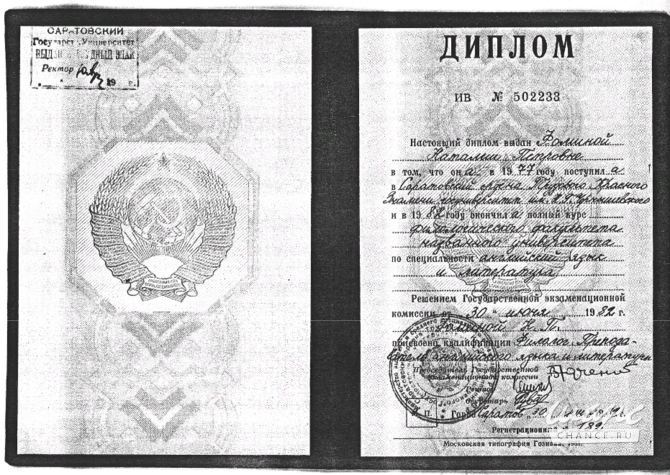 САРАТОВСКИЙ
Государст. Университет
ВЫДАН НАГРУДНЫЙ ЗНАК
Ректор
19 г.
ДИПЛОМ
ИВ № 502233
Настоящий диплом выдан Фоминой
Наталии Петровне
в том, что он а в 1977 году поступил а
в Саратовский ордена Трудового Красного
Знамени госуниверситет им. Н.Г. Чернышевского
и в 1982 году окончил а полный курс
филологического факультета
названного университета
по специальности английский язык
и литература
Решением Государственной экзаменационной
комиссии от 30 июня 1982 г.
Фоминой Н. П.
присвоена квалификация Филолог. Препода-
ватель английского языка и литературы
Председатель Государственной
экзаменационной комиссии
Ректор
Секретарь
М. П. Город Саратов
Регистрационный 189
Московская типография Гознака.
CHANCE.RU